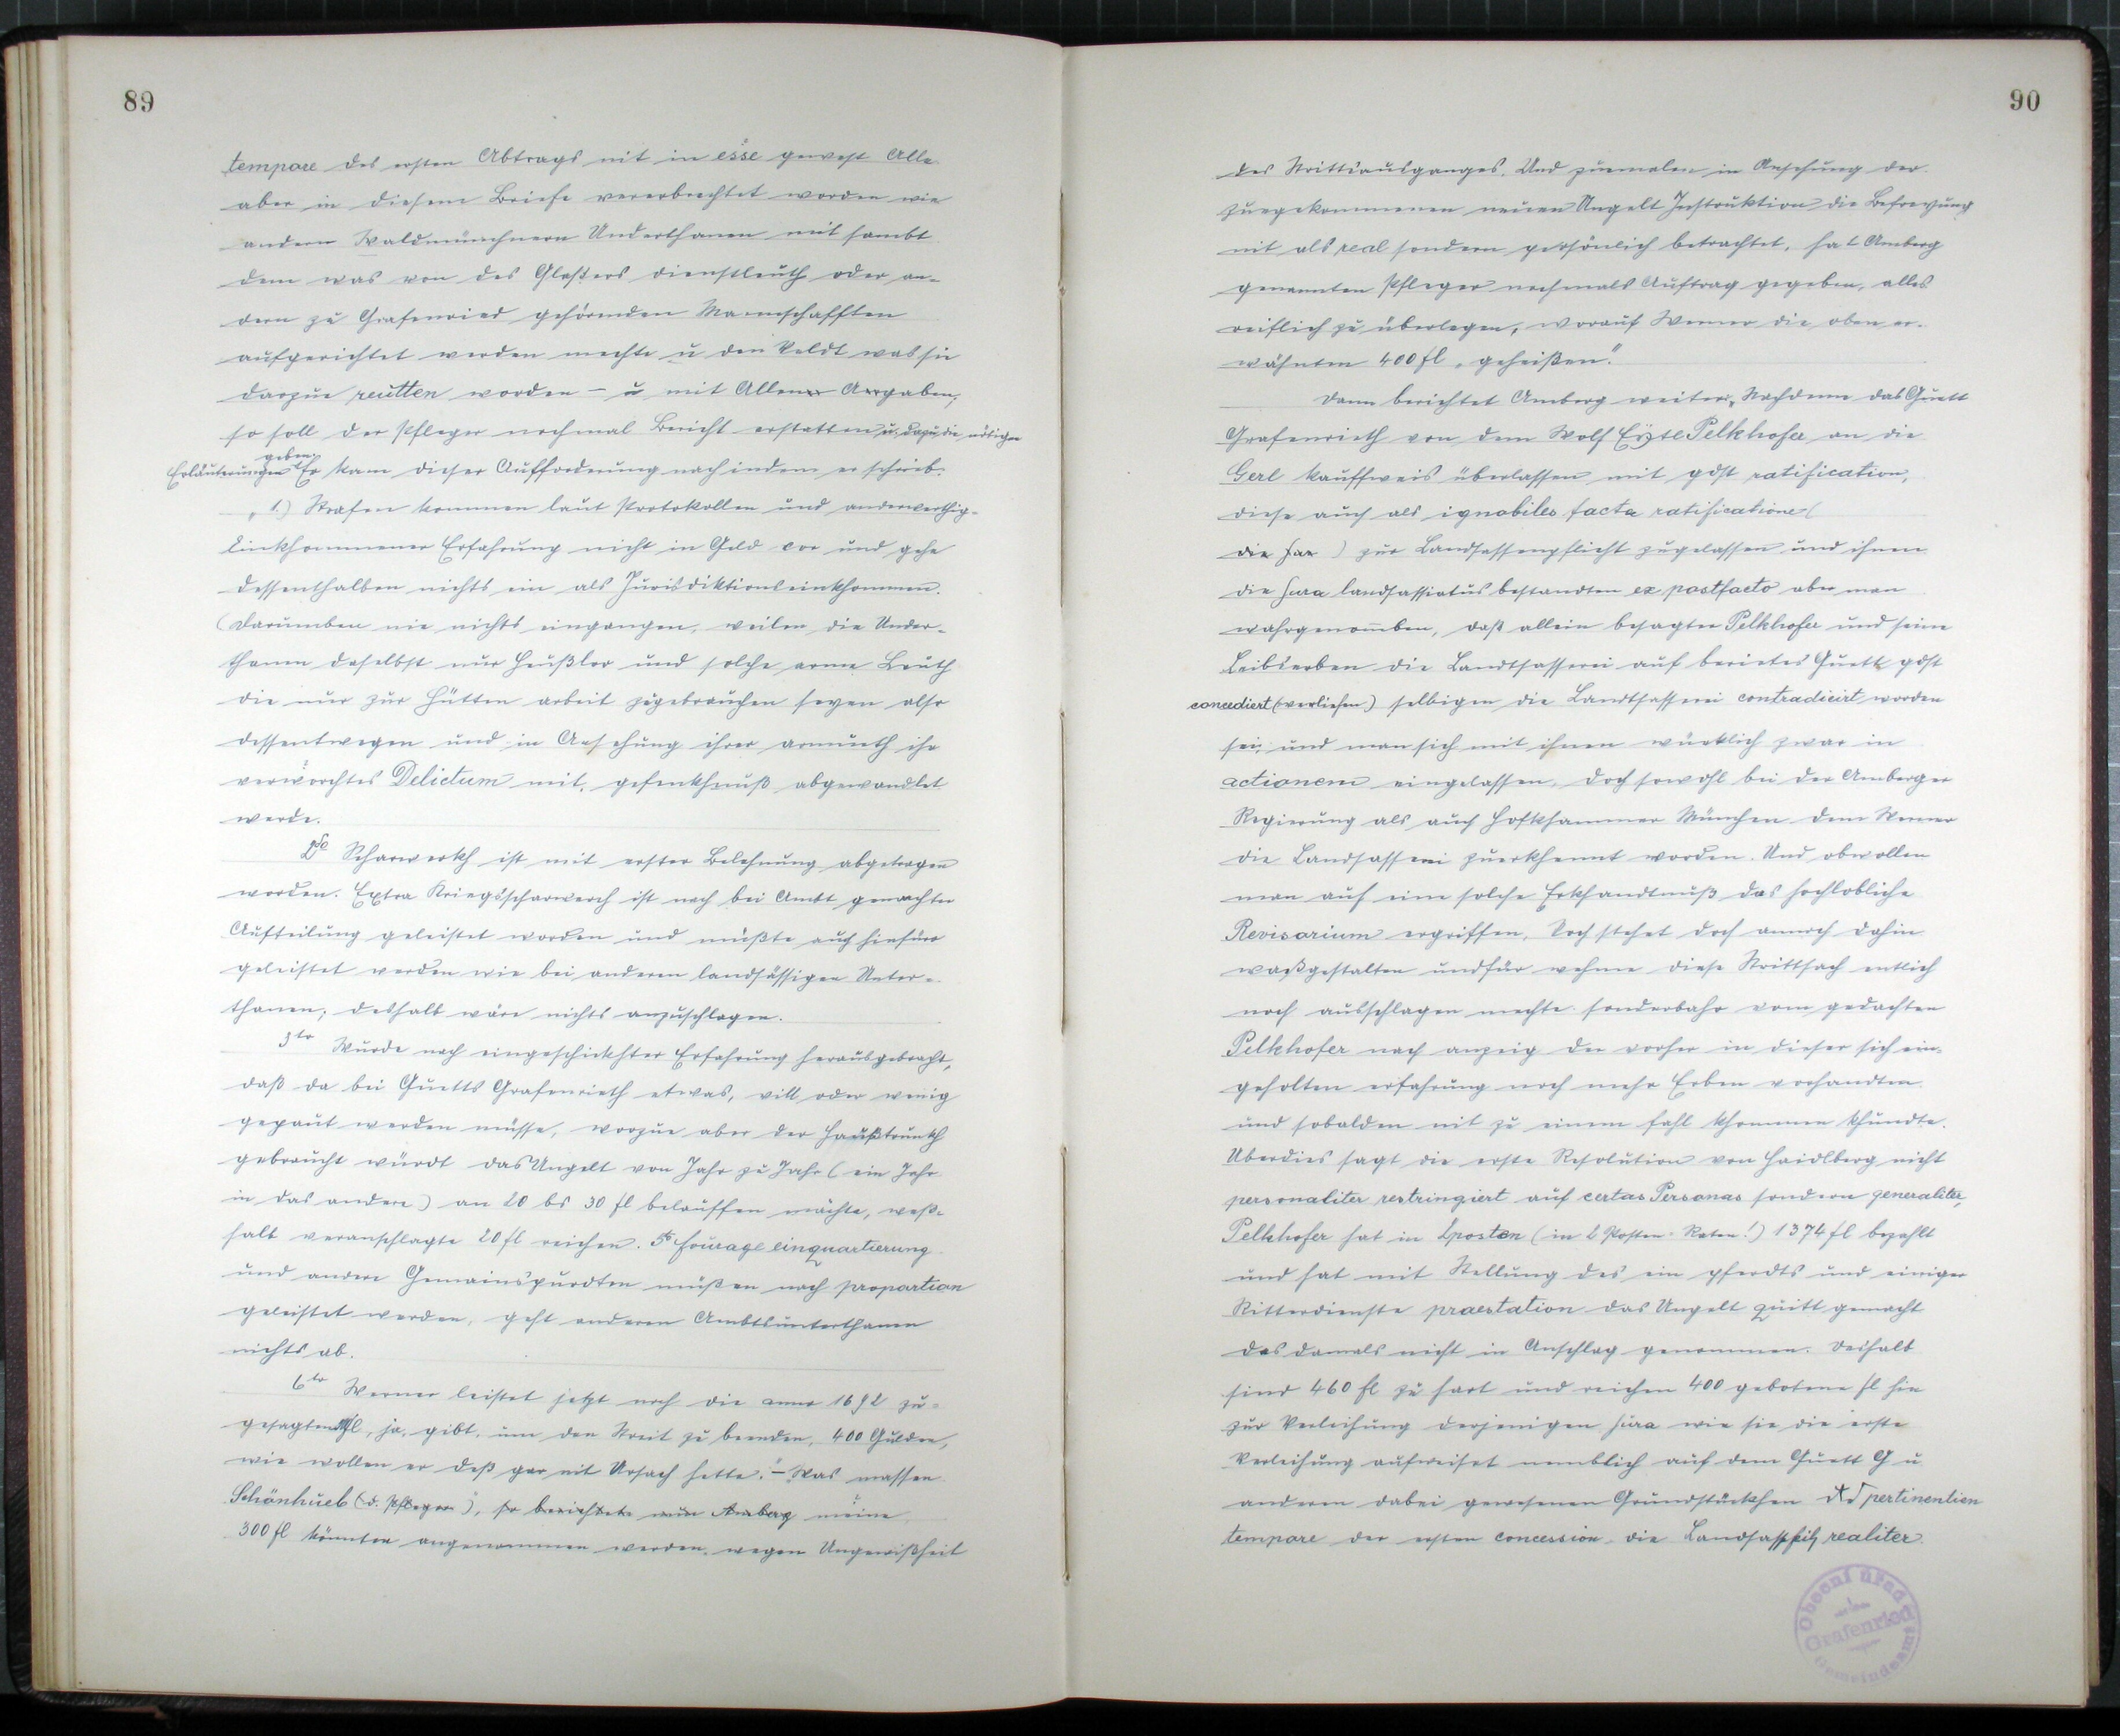 89
tempore des ersten Abtrags nit in esse gewest Alle
aber in diesem Briefe vererbrechtet worden wie
andern Waldmünchnern Underthanen mit sambt
dem was von des Glasers dienstleuth oder an-
dern zu Grafenried gehörenden Mannschafften
aufgerichtet werden mechte u den Veldt was sie
darzue reutten worden – u mit Allen Angaben,
so soll der Pfleger nochmal Bericht erstatten u. dazu die nötigen
Erläuterungen geben. Er kam dieser Aufforderung nach indem er schrieb:
„1.) Strafen kommen laut Protokollen und anderwerthig-
einkhommener Erfahrung nicht in Geld vor und gehe
dessenthalben nichts ein als Jurisdiktionseinkhommen.
(Darumben nie nichts eingangen, weilen die Under-
thanen daselbst nur Heußler und solche arme Leuth
die nur zur Hütten arbeit zugebrauchen seyen also
dessentwegen und in Ansehung ihrer armueth ihr
verworchtes Delictum mit gefenkhnuß abgewandlet
werde.
2do Scharwerkh ist mit erster Belehnung abgetragen
worden. Extra Kriegsscharwerch ist nach bei Ambt gemachter
Aufteilung geleistet worden und müßte auch hinfüro
geleistet werden wie bei anderen landsässigen Unter-
thanen, deshalb wäre nichts anzuschlagen.
3tio Wurde nach eingeschickhter Erfahrung herausgebracht,
daß da bei Guetts Grafenrieth etwas, vill oder wenig
gepaut werden müsse, worzue aber der Haußtrunkh
gebraucht würdt das Ungelt von Jahr zu Jahr (ein Jahr
in das andere) an 20 bs 30 fl belauffen mächte, weß-
halb veranschlagte 20 fl reichen. 5to fourage einquartierung
und andere Gemainspurdten müßen nach proportion
geleistet werden, geht anderen Ambtsunterthanen
nichts ab.
6to Werner leistet jetzt noch die anno 1692 zu-
gesagten fl, ja, gibt, um den Streit zu beenden, 400 Gulden,
wie wollen er deß gar nit Ursach hette." – Was massen
Schönhueb (d. Pfleger), so berichtete nun Amberg meine
300 fl könnten angenommen werden, wegen Ungewißheit
90
des Strittsausganges. Und zuemalen in Ansehung der
zuegekommenen neuen Ungelt Instruktion die Befreyung
nit als real sondern persönlich betrachtet, hat Amberg
genannten Pfleger nochmals Auftrag gegeben, alles
reiflich zu überlegen, worauf Werner die oben er-
wähnten 400 fl „geheißen".
Dann berichtet Amberg weiter: „Nachdem das Guett
Grafenrieth von dem Wolf Pelkhofer an die
Gerl kauffweis überlassen mit gdst ratification,
diese auch als ignobiles facta ratificatione (
die hae) zur Landsassenpflicht zugelassen und ihnen
die Jura landsassiatus bestandten ex postfacto aber man
wahrgenomben, daß allein besagter Pelkhofer und seine
Leibserben die Landtsasserei auf berietes Guett gdst
concediert (verliehen) selbigen die Landtsasserei contradicirt worden
sei, und man sich mit ihnen würcklich zwar in
actionem eingelassen, doch sowohl bei der Amberger
Regierung als auch Hofkhammer München dem Werner
die Landsasserei zuerkhennt worden. Und obwollen
man auf eine solche Erkhandtnuß das hochlobliche
Revisorium ergriffen, doch stehet doch annoch dahin
waßgestalten und für wehme diese Strittsach entlich
noch ausschlagen mechte sonderbahr vom gedachten
Pelkhofer nach anzeig der vorher in dieser sich ein-
geholten erfahrung noch mehr Erben vorhandten
und sobalden nit zu einem fahl khommen khundte.
Überdies sagt die erste Resolution von Haidlberg nicht
personaliter restringiert auf certas Personas sondern generaliter,
Pelkhofer hat in 2 posten (in 2 Posten-Raten!) 1374 fl bezahlt
und hat mit Stellung des ein pferdts und einiger
Ritterdienste praestation das Ungelt quitt gemacht
das damals nicht in Anschlag genommen. Deshalb
sind 460 fl zu hart und reichen 400 gebotene fl hin
zur Verleihung derjenigen Jura wie sie die erste
Verleihung aufweiset nemblich auf dem Guett G u
anderen dabei gewesenen Grundstückhen pertinentien
tempore der ersten concession die Landsassseitz realiter
Obecní úřad
Grafenried
Gemeindeamt